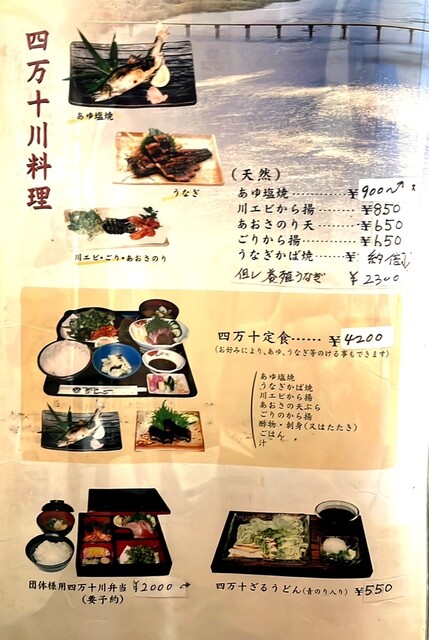 四万十川料理
あゆ塩焼
うなぎ
川エビ・ごり・あおさのり
(天然)
あゆ塩焼…………¥900〜
川エビから揚…………¥850
あおさのり天…………¥650
ごりから揚…………¥650
うなぎかば焼………¥
但し養殖うなぎ ¥2300
四万十定食……¥4200
(お好みにより、あゆ、うなぎ等のける事もできます)
あゆ塩焼
うなぎかば焼
川エビから揚
あおさの天ぷら
ごりのから揚
酢物・刺身(又はたたき)
ごはん
汁
団体様用四万十川弁当 ¥2000〜
(要予約)
四万十ざるうどん(青のり入り) ¥550